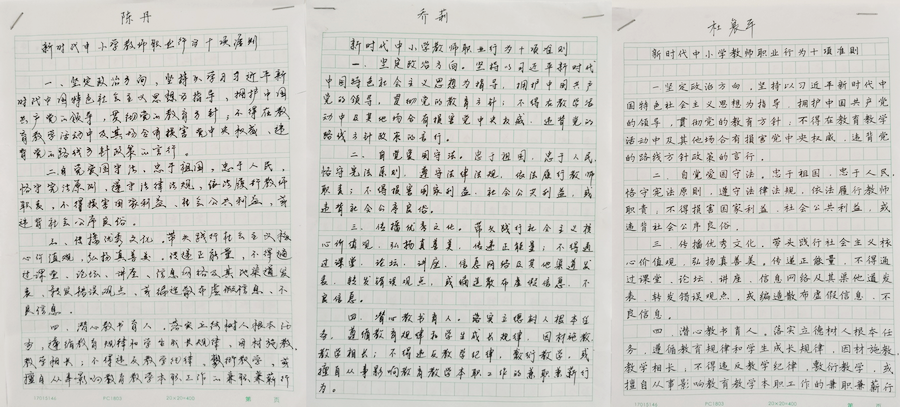 陈丹
新时代中小学教师职业行为十项准则
一、坚定政治方向,坚持以学习习近平新
时代中国特色社会主义思想为指导,拥护中国
共产党的领导,贯彻党的教育方针,不得在教
育教学活动中及其场合有损害党中央权威,违
背党的路线方针政策的言行。
二.自觉爱国守法、忠于祖国,忠于人民,
恪守宪法原则,遵守法律法规,依法履行教师
职责,不得损害国家利益、社会公共利益,或
违背社会公序良俗。
三、传播优秀文化。带头践行社会主义核
心价值观,弘扬真善美,传递正能量,不得通
过课堂、论坛、讲座、信息网络及其他渠道发
表、转发错误观点、或编造散布虚假信息、不
良信息.
四、潜心教书育人。落实立德树人根本任
务,遵循教育规律和学生成长规律,因材施教,
教学相长;不得违反教学纪律,敷衍教学,或
擅自从事影响教育教学本职工作的兼职兼薪行
17015146 PC1803 20×20=400
乔莉
新时代中小学教师职业行为十项准则
一.坚定政治方向。坚持以习近平新时代
中国特色社会主义思想为指导,拥护中国共产
党的领导,贯彻党的教育方针;不得在教学活
动中及其他场合有损害党中央权威、违背党的
路线方针政策的言行。
二、自觉爱国守法。忠于祖国,忠于人民,
恪守宪法原则,遵守法律法规,依法履行教师
职责;不得损害国家利益、社会公共利益,或
违背社会公序良俗。
三、传播优秀文化。带头践行社会主义核
心价值观,弘扬真善美,传递正能量;不得通
过课堂、论坛、讲座、信息网络及其他渠道发
表、转发错误观点,或编造散布虚假信息、不
良信息。
四、潜心教书育人。落实立德树人根本任
务,遵循教育规律和学生成长规律,因材施教,
教学相长;不得违反教学纪律,敷衍教学,或
擅自从事影响教育教学本职工作的兼职兼薪行
为。
杜
新时代中小学教师职业行为十项准则
一坚定政治方向,坚持以习近平新时代中
国特色社会主义思想为指导,拥护中国共产党
的领导,贯彻党的教育方针;不得在教育教学
活动中及其他场合有损害党中央权威,违背党
的路线方针政策的言行。
二.自觉爱国守法。忠于祖国,忠于人民,
恪守宪法原则,遵守法律法规,依法履行教师
职责,不得损害国家利益,社会公共利益,或
违背社会公序良俗。
三.传播优秀文化,带头践行社会主义核
心价值观,弘扬真善美。传递正能量,不得通
过课堂,论坛,讲座,信息网络及其他道发
表,转发错误观点,或编造散布虚假信息,不
良信息。
四.潜心教书育人。落实立德树人根本任
务,遵循教育规律和学生成长规律,因材施教,
教学相长,不得违反教学纪律,敷衍教学,或
擅自从事影响教育教学本职工作的兼职兼薪行
17015146 PC1803 20×20=400